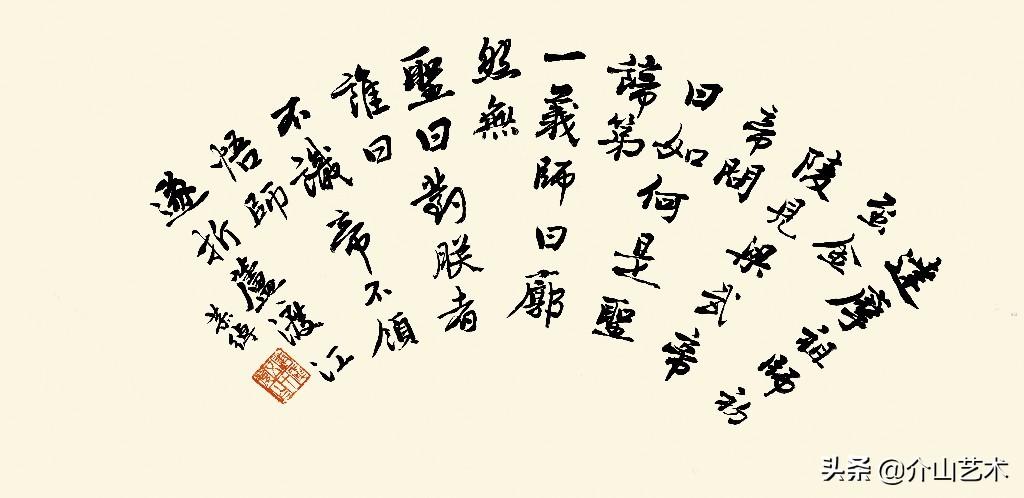 達摩祖師初
至金
陵見與武帝
帝問
曰如何是聖
諦第
一義師曰廓
然無
聖曰對朕者
誰曰
不識帝不領
悟師
遂折蘆渡江
头条 @介山艺术